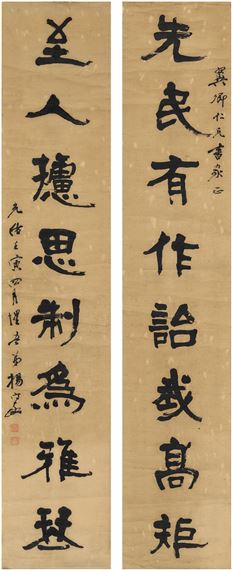 巽卿仁兄書家正
先民有作詒我高矩
至人攄思制為雅琴
光緒壬寅四月惺吾弟楊守敬